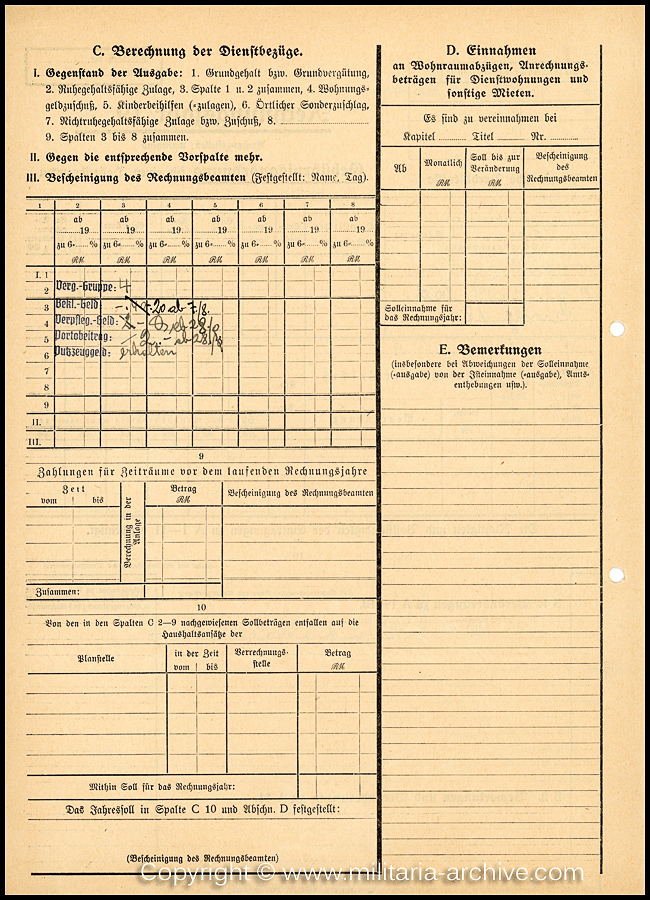 C. Berechnung der Dienstbezüge.
I. Gegenstand der Ausgabe: 1. Grundgehalt bzw. Grundvergütung,
2. Ruhegehaltsfähige Zulage, 3. Spalte 1 u. 2 zusammen, 4. Wohnungs-
geldzuschuß, 5. Kinderbeihilfen (-zulagen), 6. Örtlicher Sonderzuschlag,
7. Nichtruhegehaltsfähige Zulage bzw. Zuschuß, 8. ........
9. Spalten 3 bis 8 zusammen.
II. Gegen die entsprechende Vorspalte mehr.
III. Bescheinigung des Rechnungsbeamten (Festgestellt: Name, Tag).
1 2 3 4 5 6 7 8
ab ab ab ab ab ab ab
19 19 19 19 19 19 19
zu 6-......% zu 6-......% zu 6-......% zu 6-......% zu 6-......% zu 6-......% zu 6-......%
RM RM RM RM RM RM RM
I. 1
2 Verg.-Gruppe: 4
3 Bekl.-Geld: -.20 ab 7/8.
4 Verpfleg.-Geld:
5 Portobeitrag:
6 Putzzeuggeld: erhalten
7
8
9
II.
III.
9
Zahlungen für Zeiträume vor dem laufenden Rechnungsjahre
Zeit
vom bis
Berechnung in der Anlage
Betrag
RM
Bescheinigung des Rechnungsbeamten
Zusammen:
10
Von den in den Spalten C 2—9 nachgewiesenen Sollbeträgen entfallen auf die
Haushaltsansätze der
Planstelle
in der Zeit
vom bis
Verrechnungs-
stelle
Betrag
RM
Mithin Soll für das Rechnungsjahr:
Das Jahressoll in Spalte C 10 und Abschn. D festgestellt:
(Bescheinigung des Rechnungsbeamten)
D. Einnahmen
an Wohnraumabzügen, Anrechnungs-
beträgen für Dienstwohnungen und
sonstige Mieten.
Es sind zu vereinnahmen bei
Kapitel ........ Titel ........ Nr. ........
Ab
Monatlich
RM
Soll bis zur
Veränderung
RM
Bescheinigung
des
Rechnungsbeamten
Solleinnahme für
das Rechnungsjahr:
E. Bemerkungen
(insbesondere bei Abweichungen der Solleinnahme
(-ausgabe) von der Isteinnahme (-ausgabe), Amts-
enthebungen usw.).
Copyright © www.militaria-archive.com